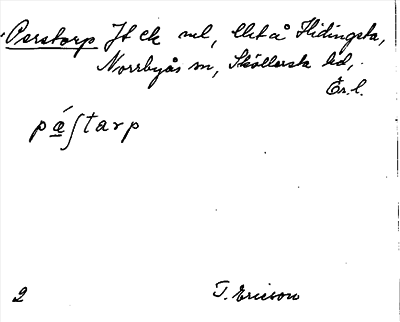 Perstorp Jt ck ml, Ut å Hidingsta,
Norrbyås sn, Sköllersta hd,
Ör. l.
pǽʃtarp
2 T. Ericson